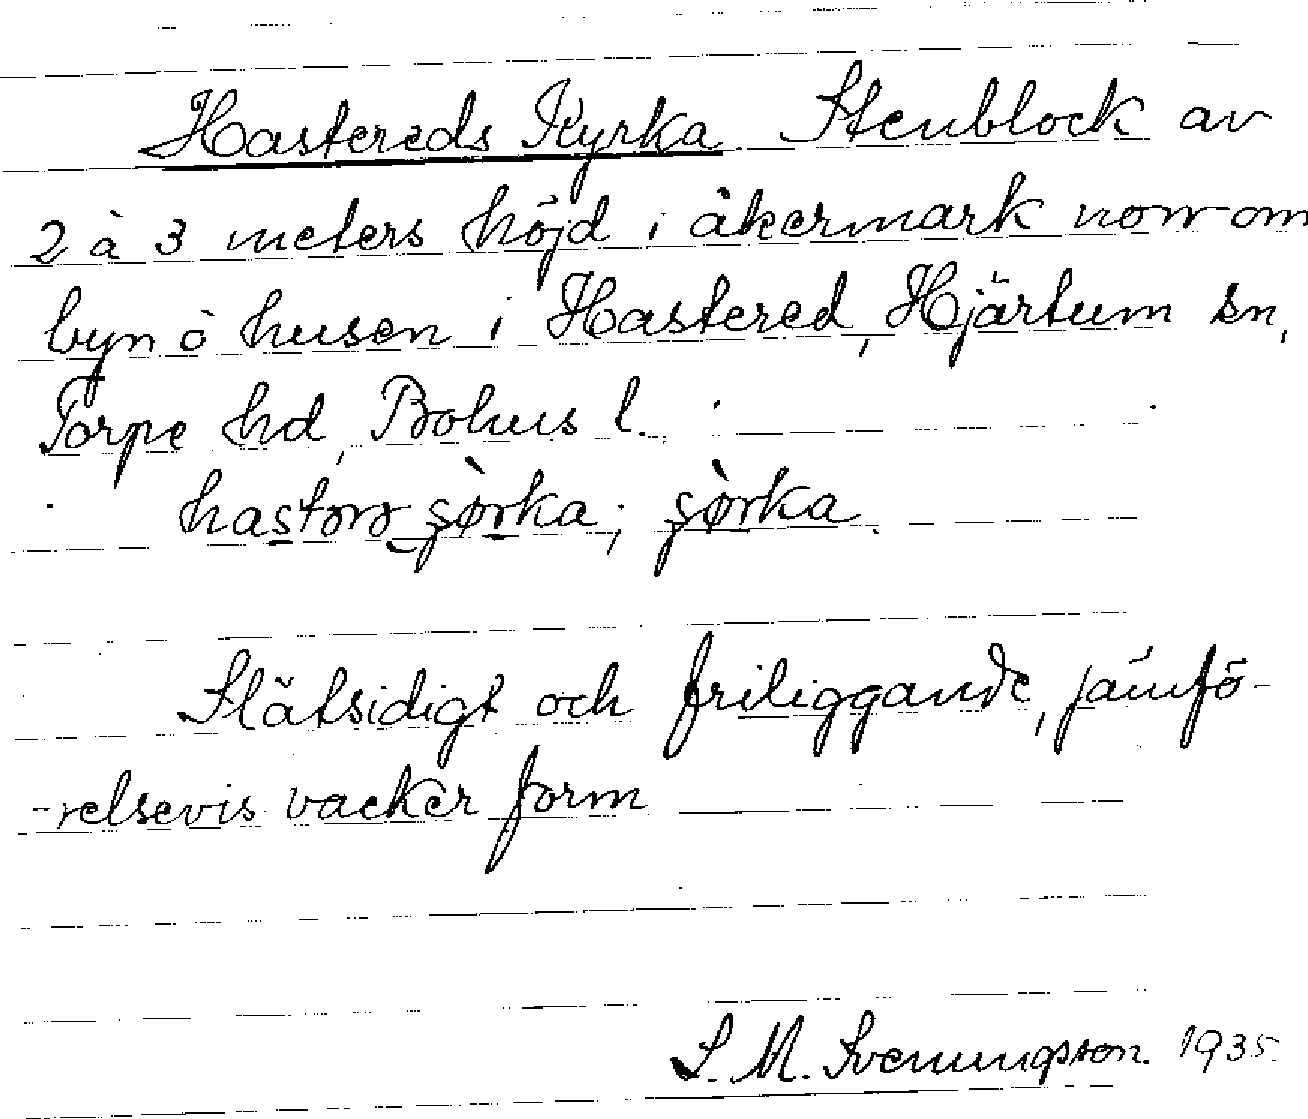 Hastereds Kyrka Stenblock av
2 à 3 meters höjd i åkermark norr om
byn å husen i Hastered, Hjärtum sn,
Torpe hd, Bohus l.
hastørø şørka; şørka.
Slätsidigt och friliggande, jämfö-
-relsevis vacker form
S. M. Svenungsson. 1935.